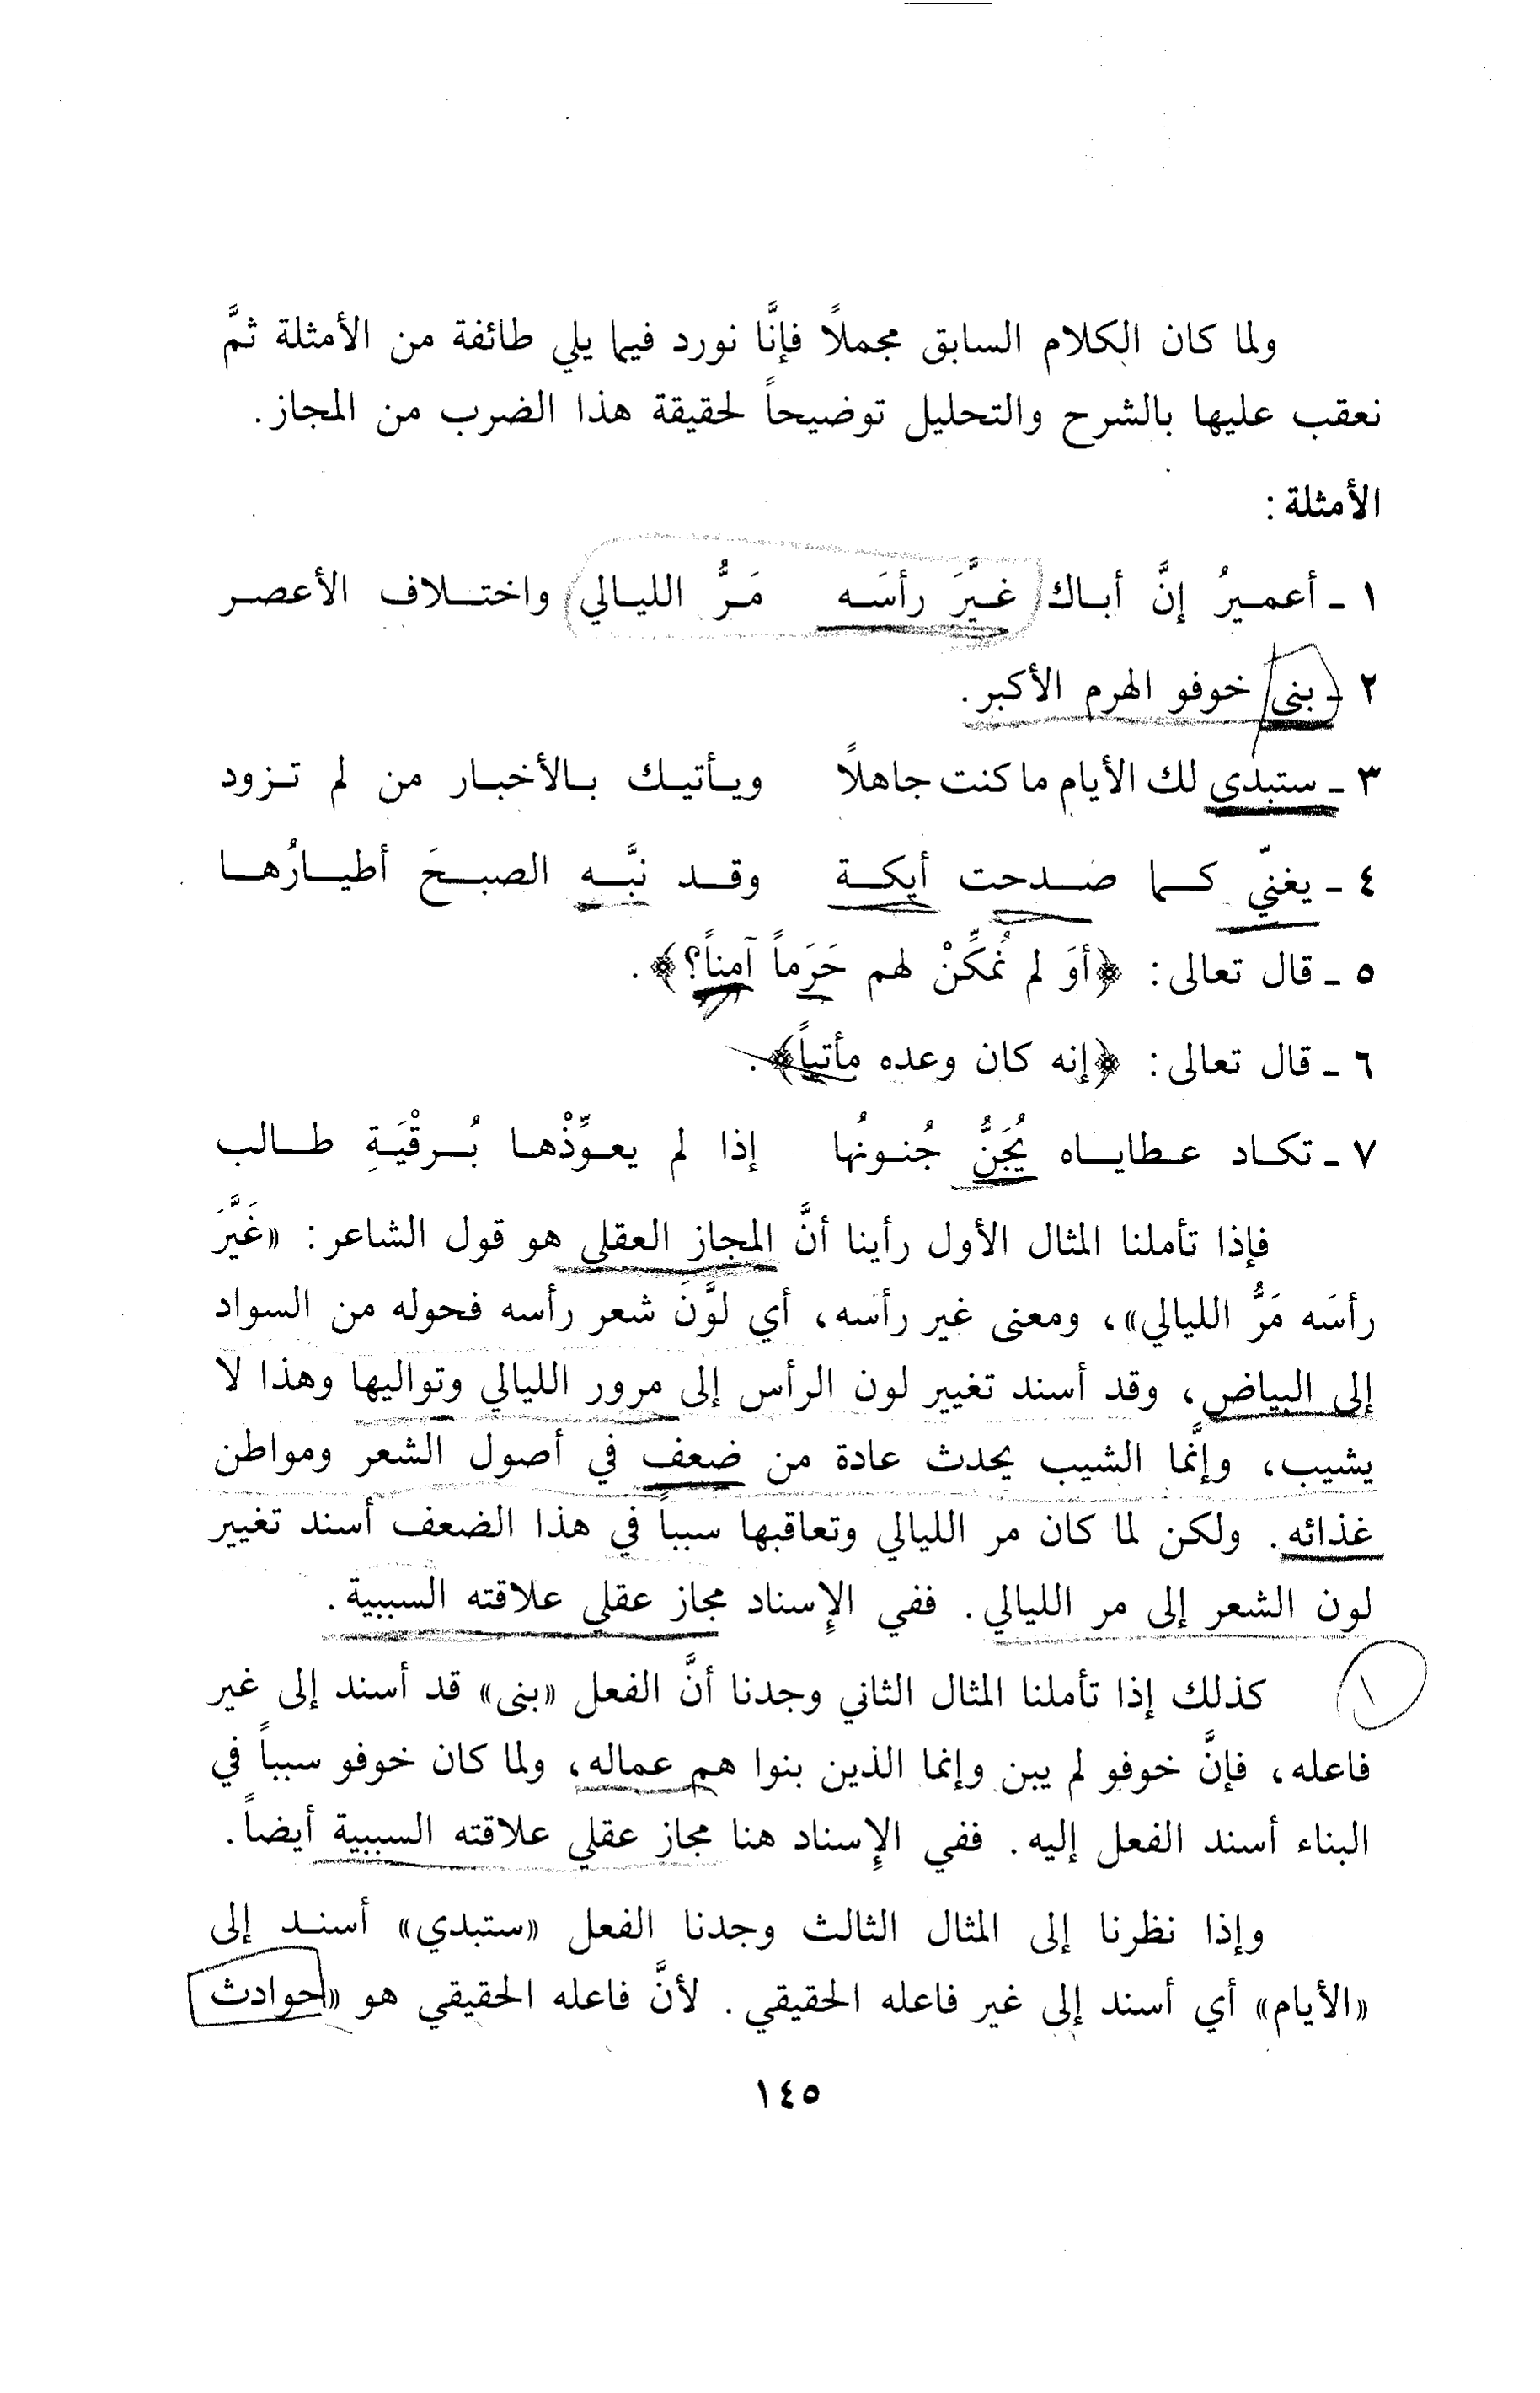 ولما كان الكلام السابق مجملاً فإنَّا نورد فيما يلي طائفة من الأمثلة ثمَّ
نعقب عليها بالشرح والتحليل توضيحاً لحقيقة هذا الضرب من المجاز.
الأمثلة :
١ ـ أعميرُ إنَّ أباك غيَّرَ رأسَه مَرُّ الليالي واختلاف الأعصر
٢ ـ بنى خوفو الهرم الأكبر.
٣ ـ ستبدي لك الأيام ما كنت جاهلاً ويأتيك بالأخبار من لم تزود
٤ ـ يغنيّ كما صدحت أيكة وقد نبَّه الصبحَ أطيارُها
٥ ـ قال تعالى: ﴿أوَ لم نُمكِّنْ لهم حَرَماً آمِناً؟﴾.
٦ ـ قال تعالى: ﴿إنه كان وعده مأتياً﴾.
٧ ـ تكاد عطاياه يُجَنُّ جُنونُها إذا لم يعوِّذْها بُرقْيَةِ طالب
فإذا تأملنا المثال الأول رأينا أنَّ المجاز العقلي هو قول الشاعر: «غَيَّرَ
رأسَه مَرُّ الليالي»، ومعنى غير رأسه، أي لوَّنَ شعر رأسه فحوله من السواد
إلى البياض، وقد أسند تغيير لون الرأس إلى مرور الليالي وتواليها وهذا لا
يشيب، وإنَّما الشيب يحدث عادة من ضعف في أصول الشعر ومواطن
غذائه. ولكن لما كان مر الليالي وتعاقبها سبباً في هذا الضعف أسند تغيير
لون الشعر إلى مر الليالي. ففي الإسناد مجاز عقلي علاقته السببية.
١
كذلك إذا تأملنا المثال الثاني وجدنا أنَّ الفعل «بنى» قد أسند إلى غير
فاعله، فإنَّ خوفو لم يبن وإنما الذين بنوا هم عماله، ولما كان خوفو سبباً في
البناء أسند الفعل إليه. ففي الإسناد هنا مجاز عقلي علاقته السببية أيضاً.
وإذا نظرنا إلى المثال الثالث وجدنا الفعل «ستبدي» أسند إلى
«الأيام» أي أسند إلى غير فاعله الحقيقي. لأنَّ فاعله الحقيقي هو «حوادث
١٤٥